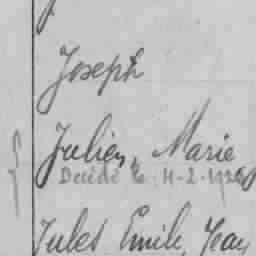 Joseph
Julien, Marie
Décédé le 11-2-19
Jules Emile, Jean